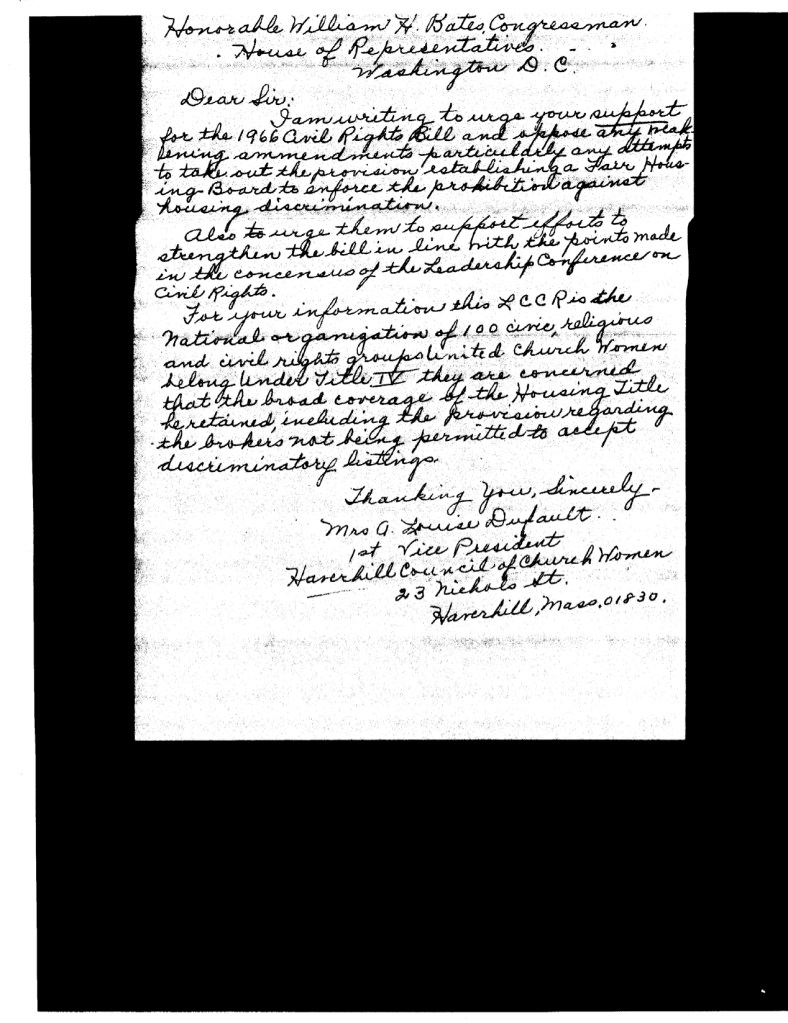 Honorable William H. Bates, Congressman.
House of Representatives.
Washington D.C.
Dear Sir:
I am writing to urge your support
for the 1966 Civil Rights Bill and oppose any weak-
ening ammendments particularly any attempts
to take out the provision establishing a Fair Hous-
ing Board to enforce the prohibition against
housing discrimination.
Also to urge them to support efforts to
strengthen the bill in line with the points made
in the concensus of the Leadership Conference on
Civil Rights.
For your information this L C C R is the
National organization of 100 civic, religious
and civil rights groups United Church Women
belong Under Title IV they are concerned
that the broad coverage of the Housing Title
be retained, including the provision regarding
the brokers not being permitted to accept
discriminatory listings.
Thanking You, Sincerely-
Mrs A. Louise Dufault.
1st Vice President
Haverhill Council of Church Women
23 Nichols St.
Haverhill, Mass. 01830.